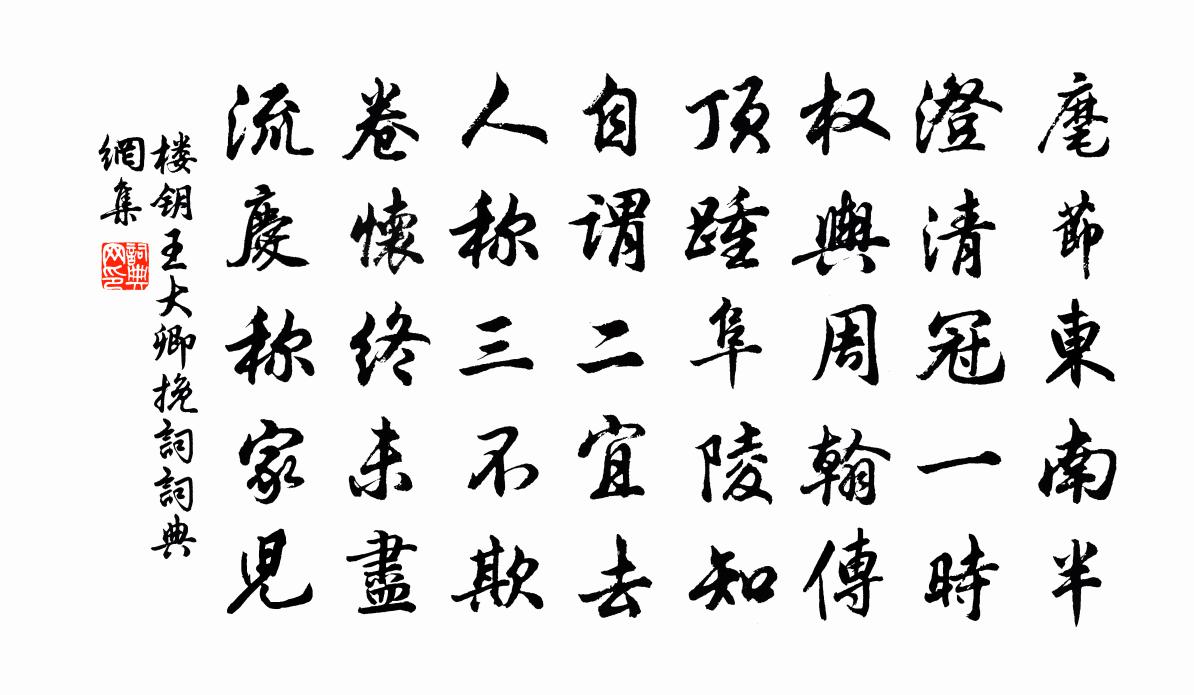 麾節東南半
澄清冠一時
权輿周翰傳
頂踵阜陵知
自謂二宜去
人称三不欺
卷懷終未盡
流慶称家児
楼钥王大卿挽詞詞典
網集
詞典
网印